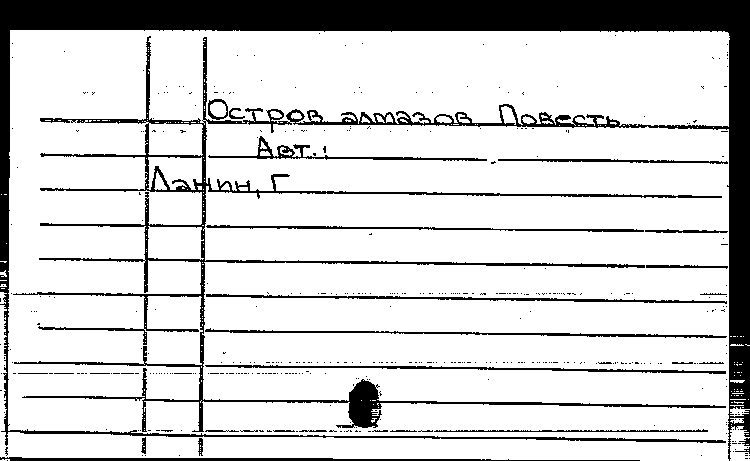 Остров алмазов Повесть
Авт.:
Ланин, Г